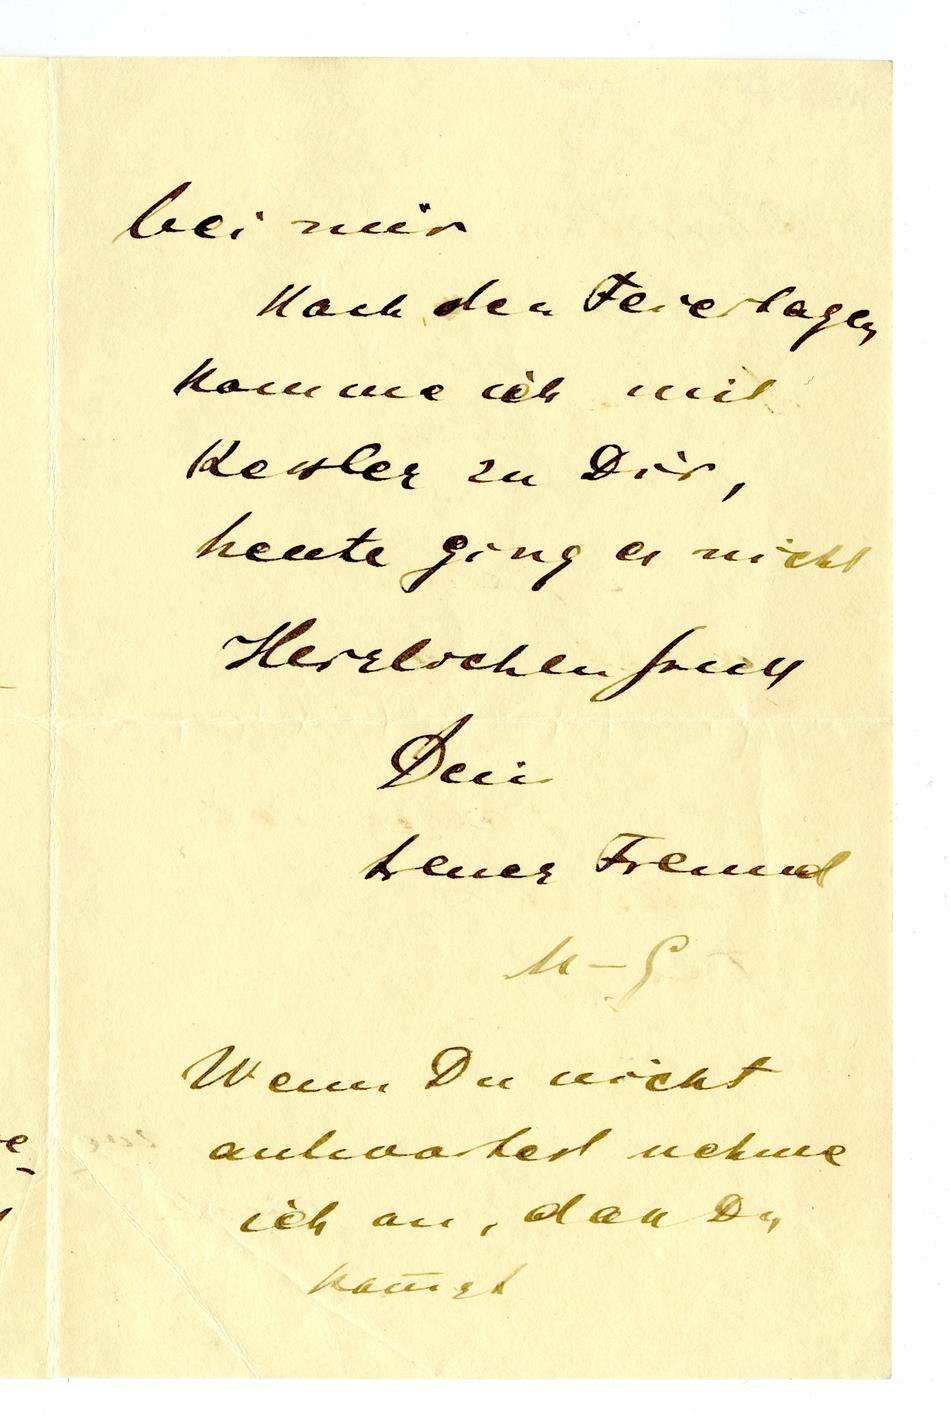 bei mir
Nach den Feiertagen
komme ich mit
Kessler zu Dir,
heute ging es nicht
Herzlichen Gruss
Dein
treuer Freund
M–G
Wenn Du nicht
antwortest nehme
ich an, dass Du
kom̅st